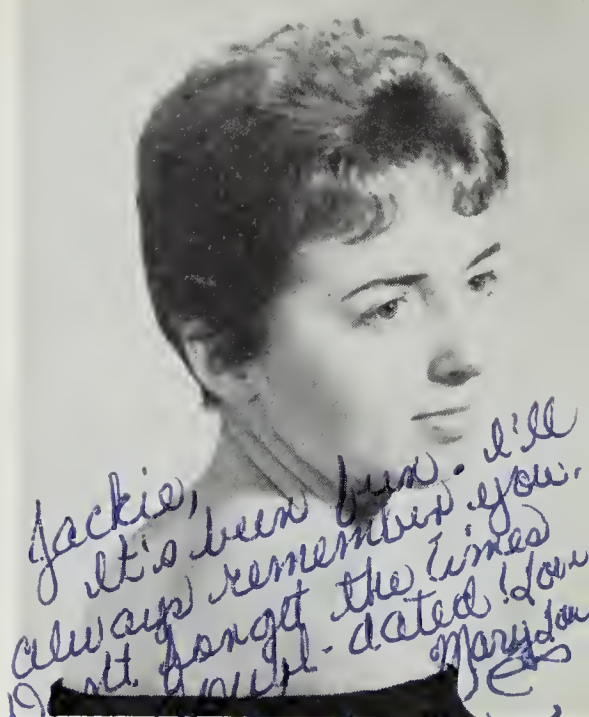 Jackie,
It's been fun. I'll
always remember you.
Don't forget the times
we - dated! Love
Mary Lou